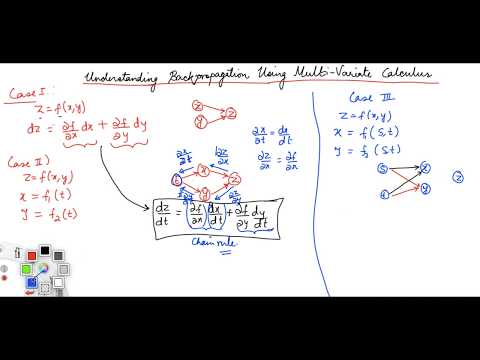 Understanding Backpropagation Using Multi-Variate Calculus
Case I:
Z = f(x,y)
dz = ∂f/∂x dx + ∂f/∂y dy
Case II)
Z = f(x,y)
x = f₁(t)
y = f₂(t)
z
y z
∂x/∂t ∂z/∂x
t x z
y
∂z/∂y
∂x/∂t = dx/dt
∂z/∂x = ∂f/∂x
dz/dt = ∂f/∂x dx/dt + ∂f/∂y dy/dt
Chain rule
Case III
Z = f(x,y)
x = f₁(s,t)
y = f₂(s,t)
s x
z
t y